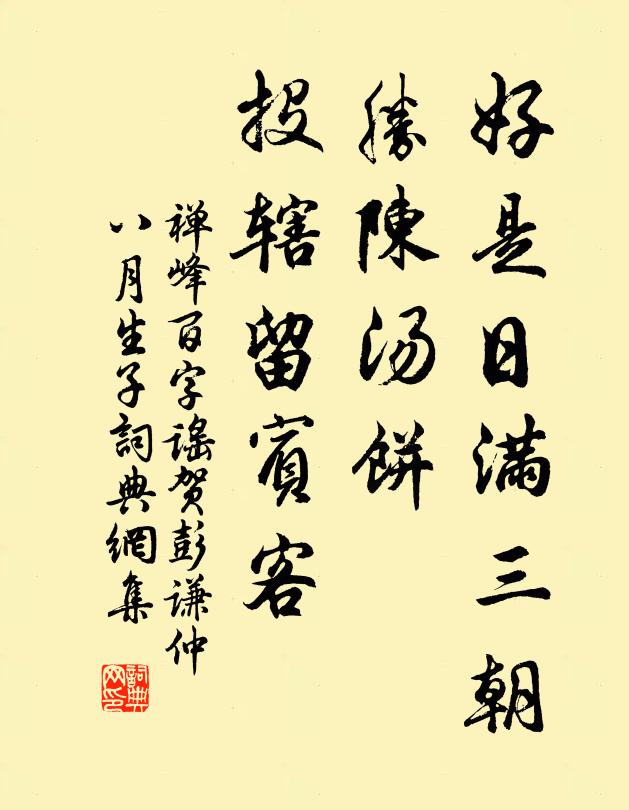 好是日满三朝
勝陳湯餅
投辖留賓客
禅峰百字謠贺彭谦仲
八月生子詞典網集
詞典
网印